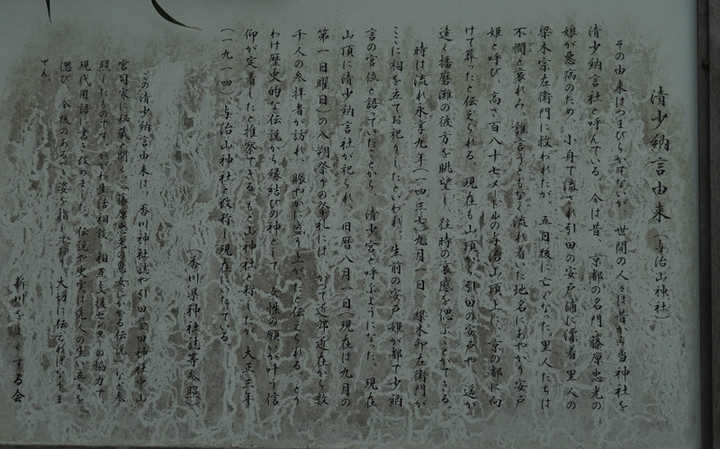 清少納言由来(与治山神社)
その由来はつまびらかでないが、世間の人々は昔から当神社を
清少納言社と呼んでいる。今は昔、京都の名門、藤原忠光の
娘が悪病のため、小舟で流され引田の安戸浦に漂着、里人の
梁木宗左衛門に救われたが、五日後に亡くなった。里人たちは
不憫と哀れみ、誰言うともなく流れ着いた地名にあやかり安戸
姫と呼び、高さ百八十七メートルの与治山頂上に、京の都に向
けて葬ったと伝えられる。現在も山頂から引田の安戸や、遥か
遠く播磨灘の彼方を眺望し、往時の哀感を偲ぶことができる。
時は流れ永享九年(一四三七)九月一日、梁木卯左衛門が
ここに祠を立てお祀りしたといわれ、生前の安戸姫が都で少納
言の官位と語っていたことから、清少宮と呼ぶようになった。現在
山頂に清少納言社が祀られ、旧暦八月一日(現在は九月の
第一日曜日)の八朔祭かの祭礼には、かつて近郷近在から数
千人の参拝者が訪れ、賑やかに盛り上がったと伝えられる。とり
わけ歴史的な伝説から縁結びの神として、女性の願いが叶う信
仰が定着したと推察できる。もと山神社と称したが、大正三年
(一九一四)、与治山神社と改称し現在にいたっている。
(香川県神社誌等参照)
この清少納言由来は、香川神社誌や引田誉田神社中山
宮司家に秘蔵と聞く、「藤原忠光の息女にかかる伝説」など参
照したものです。いわき生活相談・相互支援センターの協力で
現代用語に書き改めました。伝説や史実は先人の生きざまを
偲び、今後のあるべき姿を指し、大切に伝えねばなりま
せん。
する会